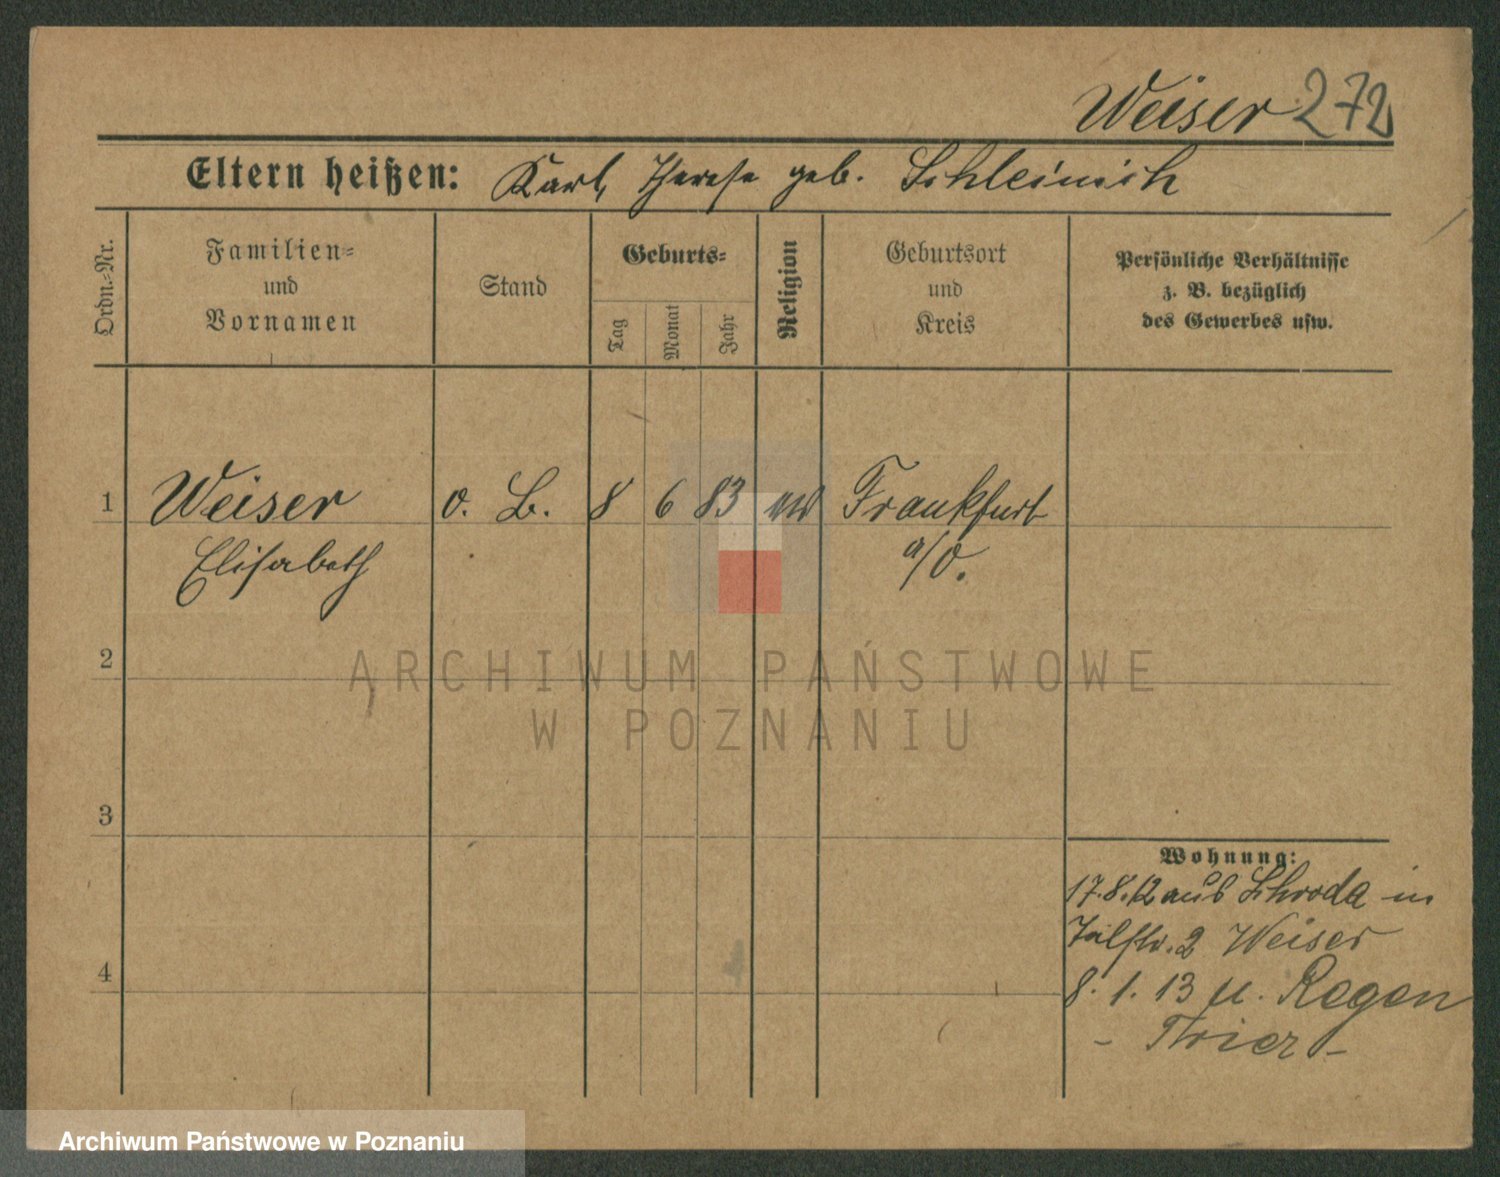 Weiser 272
Eltern heißen: Karl, Therese geb. Schleinich
Ordn.=Nr.
Familien=
und
Vornamen
Stand
Geburts=
Tag
Monat
Jahr
Religion
Geburtsort
und
Kreis
Persönliche Verhältnisse
z. B. bezüglich
des Gewerbes usw.
1 Weiser o. B. 8 6 83 Frankfurt
Elisabeth a/O.
2
ARCHIWUM PAŃSTWOWE
W POZNANIU
3
Wohnung:
17.8.12 aus Schroda in
2 Weiser
4
8. 1. 13 n. Regen
- Trier -
Archiwum Państwowe w Poznaniu